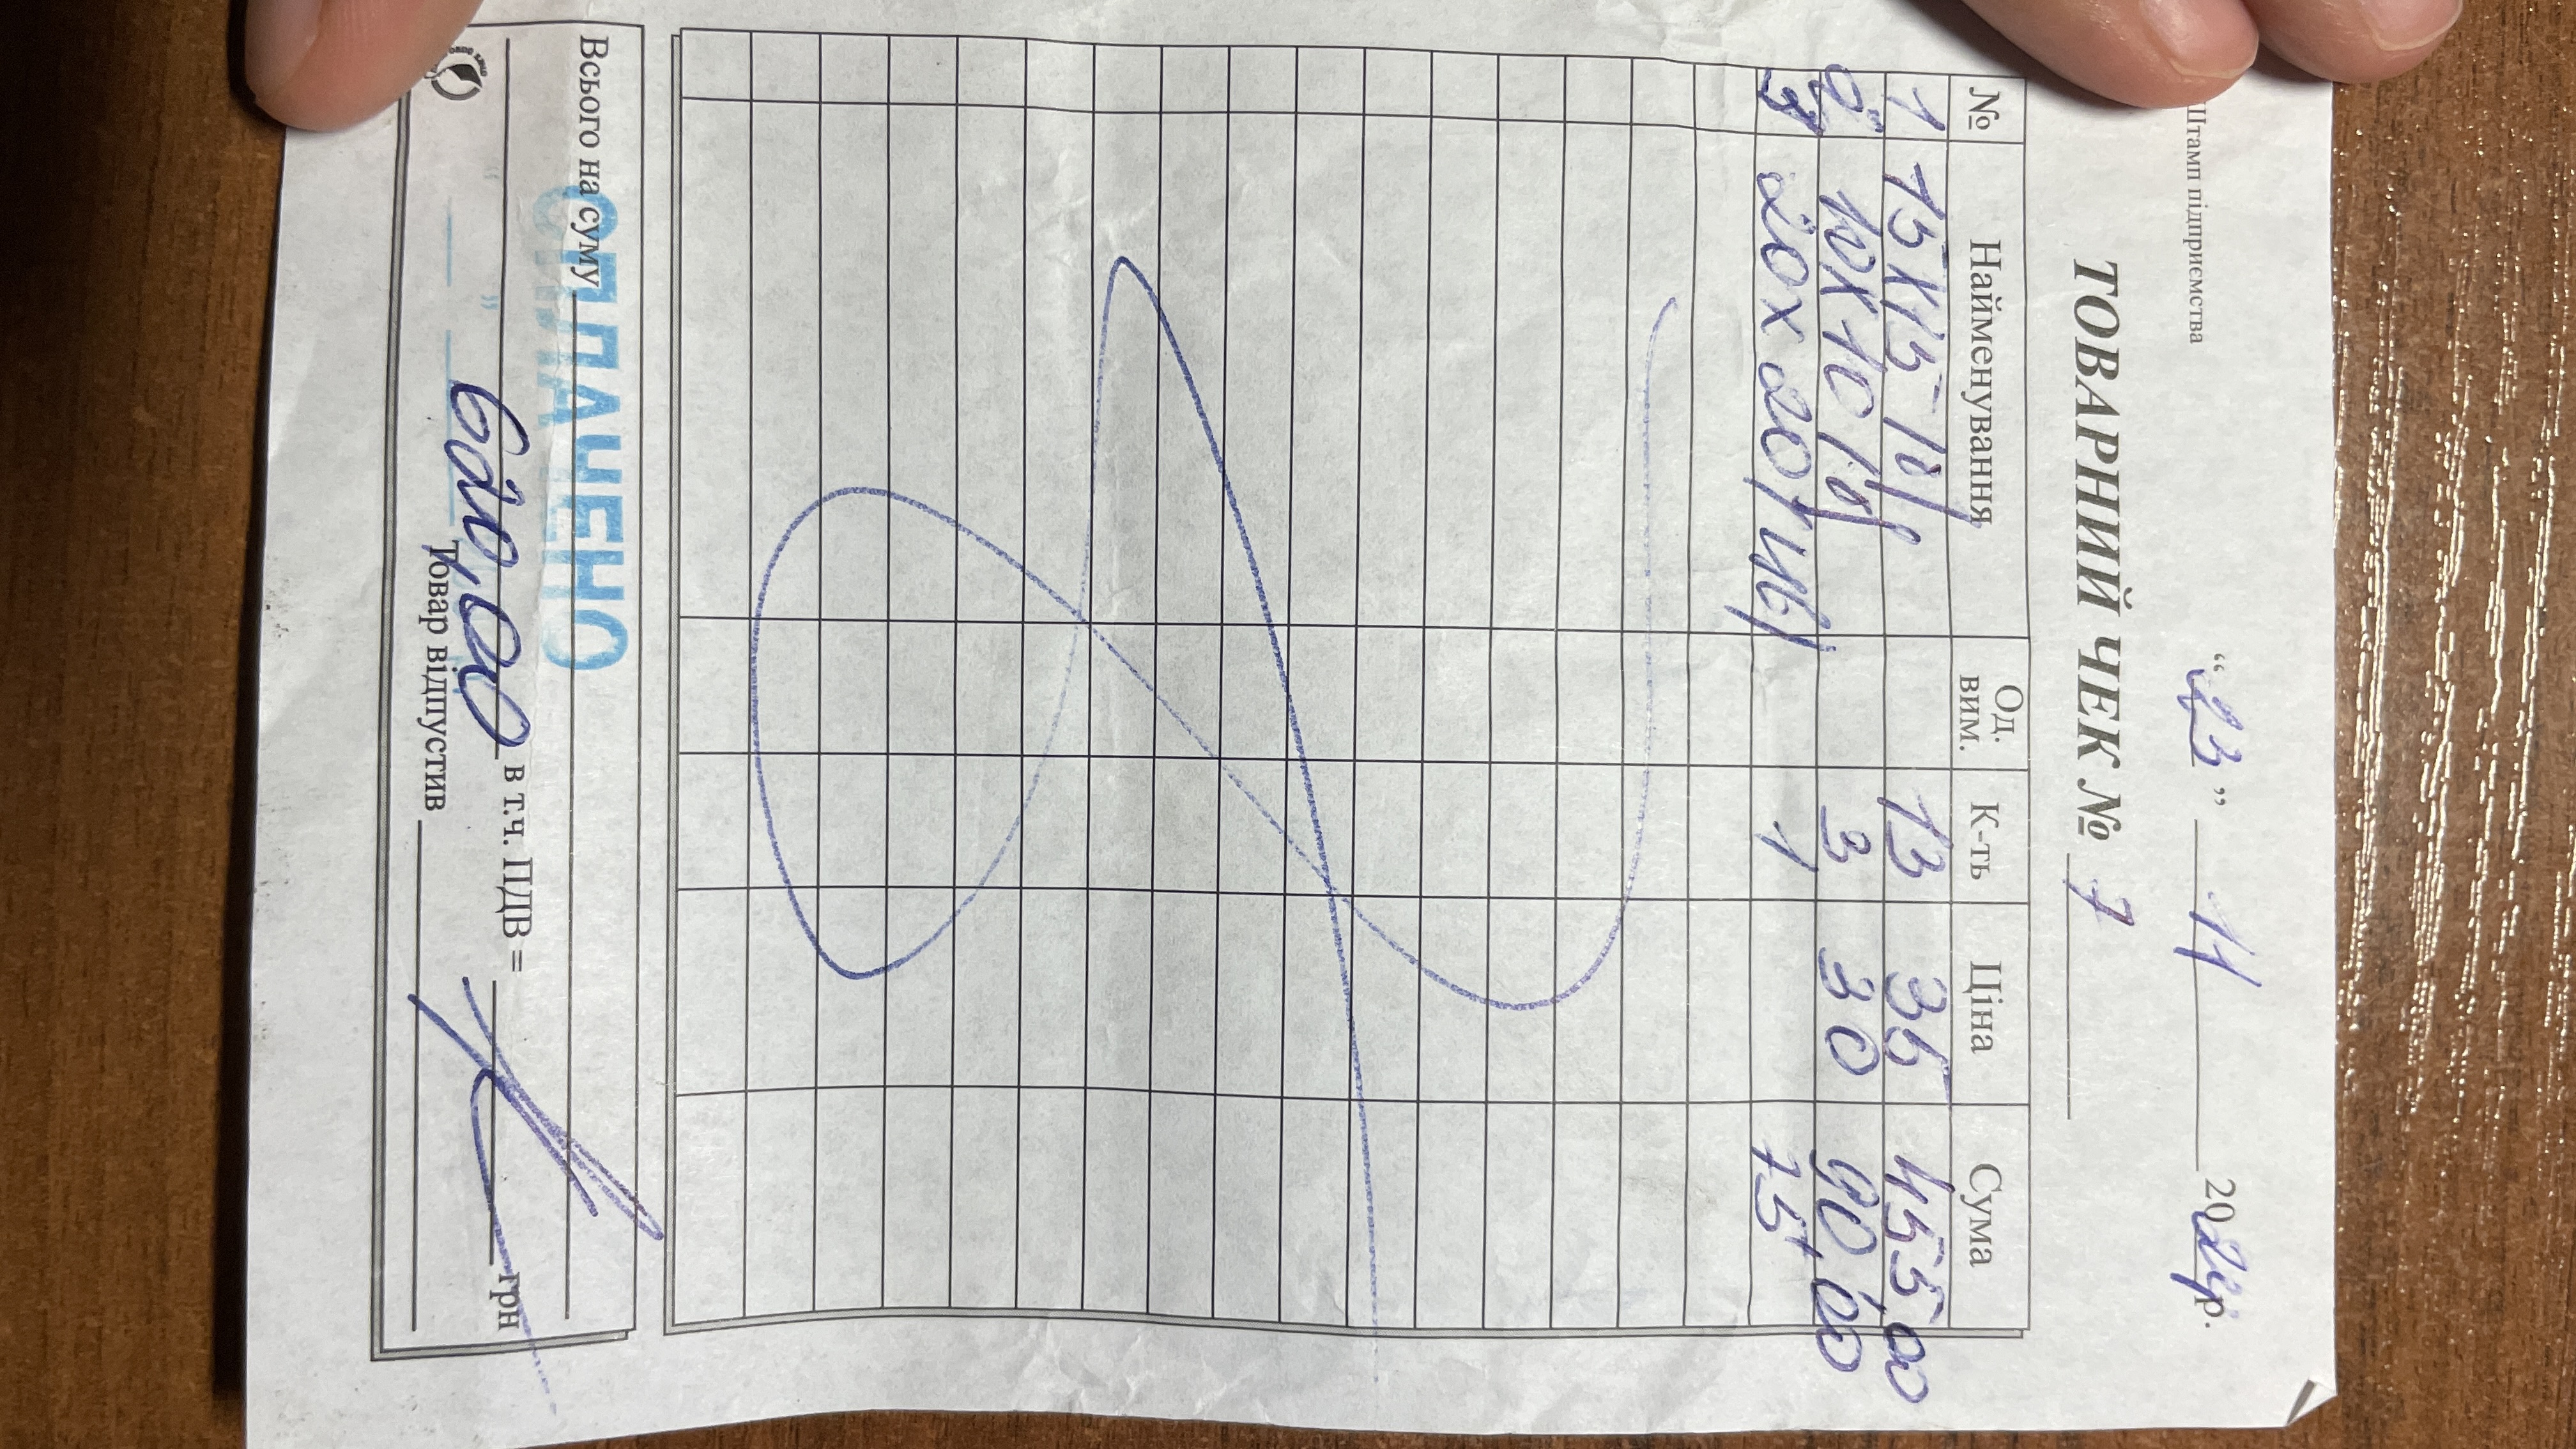 Штамп підприємства “23” 11 2024р.
ТОВАРНИЙ ЧЕК № 7
№ Найменування Од. вим. К-ть Ціна Сума
1 15х15 13 35 455,00
2 10х10 3 30 90,00
3 20х20 1 75
СПЛАЧЕНО
Всього на суму
620,00 в т.ч. ПДВ = грн
Товар відпустив